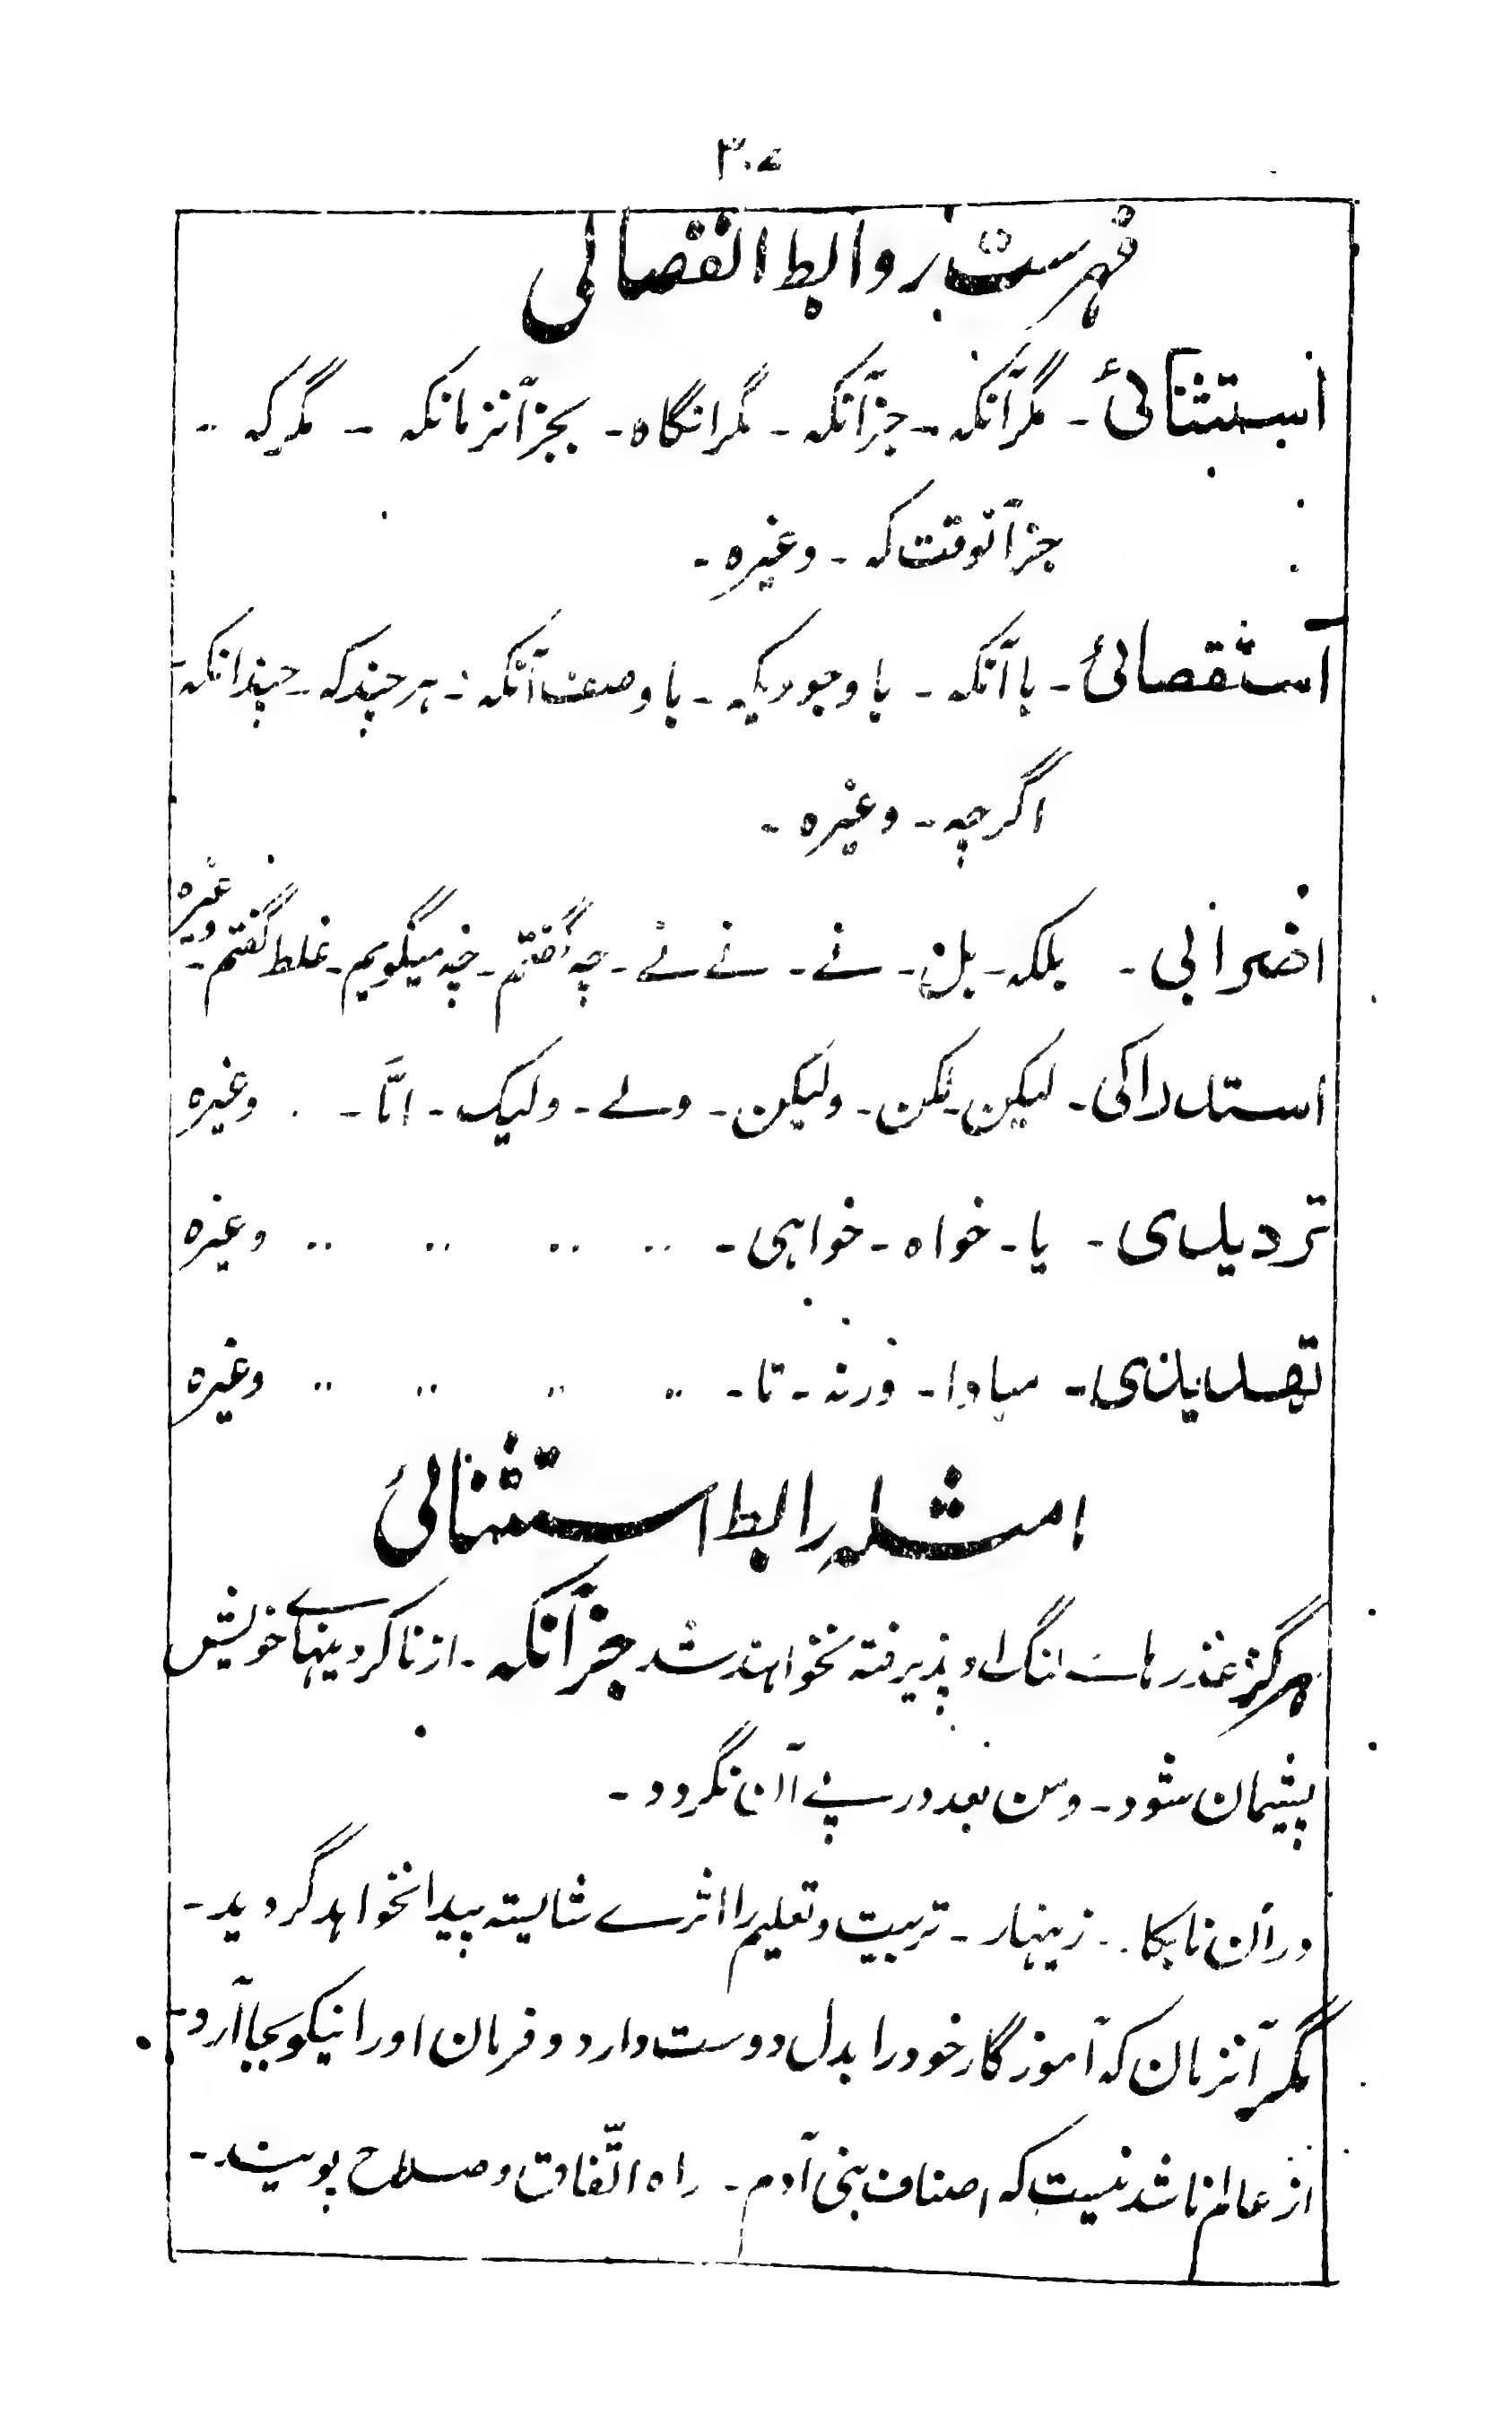 ۳۰۷
فہرست روابط انفصالی
استثنائی ۔ مگر آنکہ ۔ جز آنکہ ۔ مگر انگاہ ۔ بجز آنزمانکہ ۔ مگر کہ ۔۔
جز آنوقت کہ ۔ وغیرہ ۔
استقصائی ۔ با آنکہ ۔ باوجودیکہ ۔ باوصف آنکہ ۔ ہر چند کہ ۔ چندانکہ ۔
اگرچہ ۔ وغیرہ ۔
اضرابی ۔ بلکہ ۔ بل ۔ نے ۔ نے نے ۔ چہ گفتم ۔ چہ میگویم ۔ غلط گفتم ۔ وغیرہ
استدراکی ۔ لیکن ۔ لکن ۔ ولیکن ۔ ولے ۔ ولیک ۔ امّا ۔ . وغیرہ
تردیدی ۔ یا ۔ خواہ ۔ خواہی ۔ ۔۔ ۔۔ ۔۔ ۔۔ وغیرہ
تہدیدی ۔ مبادا ۔ ورنہ ۔ تا ۔ ۔۔ ۔۔ ۔۔ ۔۔ وغیرہ
امثلہ رابط استثنائی
ہرگز عذرہاے لنگ او پذیرفتہ نخواہند شد جز آنکہ ۔ از ناکردینہاے خویش
پشیمان شود ۔ و من بعد در پے آن نگردد ۔
در آن نابکار ۔ زینہار ۔ تربیت و تعلیم را اثرے شایستہ پیدا نخواہد گردید ۔
مگر آنزمان کہ آموزگار خود را بدل دوست دارد و فرمان اورا نیکو بجا آرد ۔
از عالم ناشدنیست کہ اصناف بنی آدم ۔ راہ اتّفاق و صلاح پویند ۔